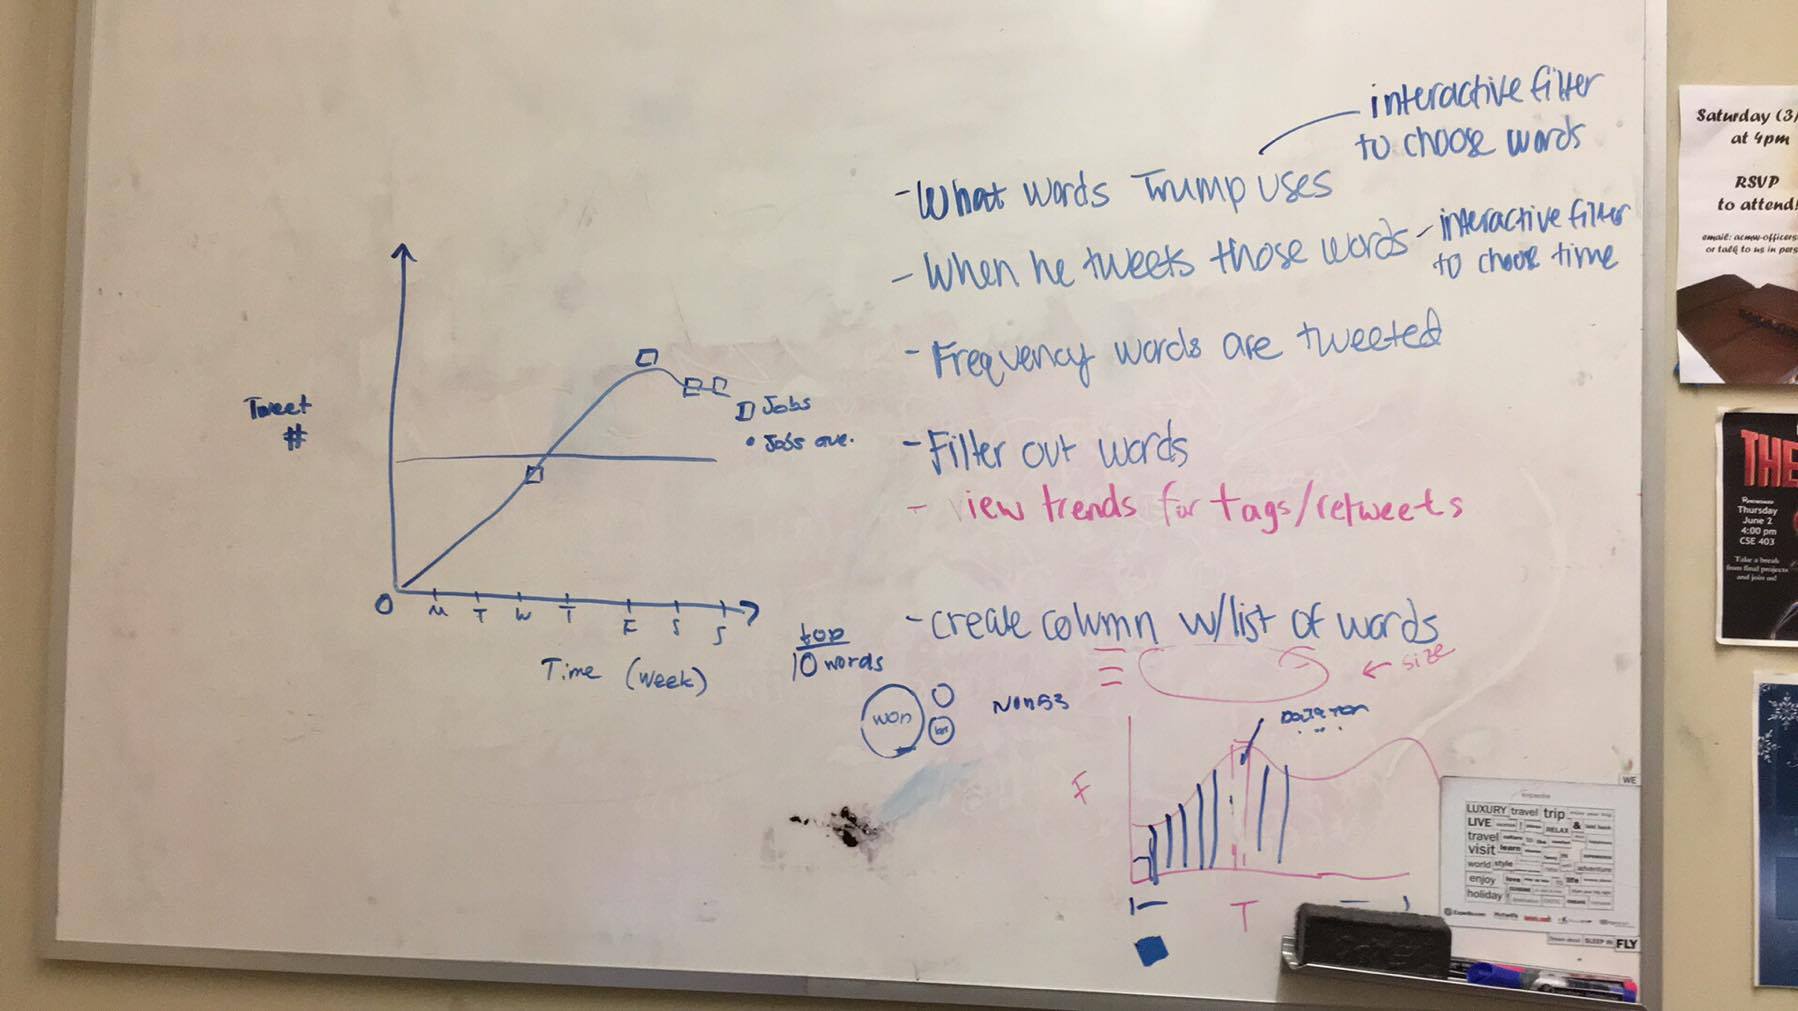 interactive filter
to choose words
- What words Trump uses
- When he tweets those words - interactive filter
to choose time
- Frequency words are tweeted
- Filter out words
- View trends for tags/retweets
- create column w/list of words
← size
Tweet
#
Jobs
• Jobs ave.
0 M T W T F S S
Time (week)
top
10 words
won
F
T
Saturday (3/
at 4pm
RSVP
to attend!
email: acmw-officers
or talk to us in pers
THE
Thursday
June 2
4:00 pm
CSE 403
Take a break
from final projects
and join us!
WE
LUXURY travel trip
LIVE
RELAX &
travel
visit learn
world style
adventure
enjoy love life
holiday
SLEEP IN FLY